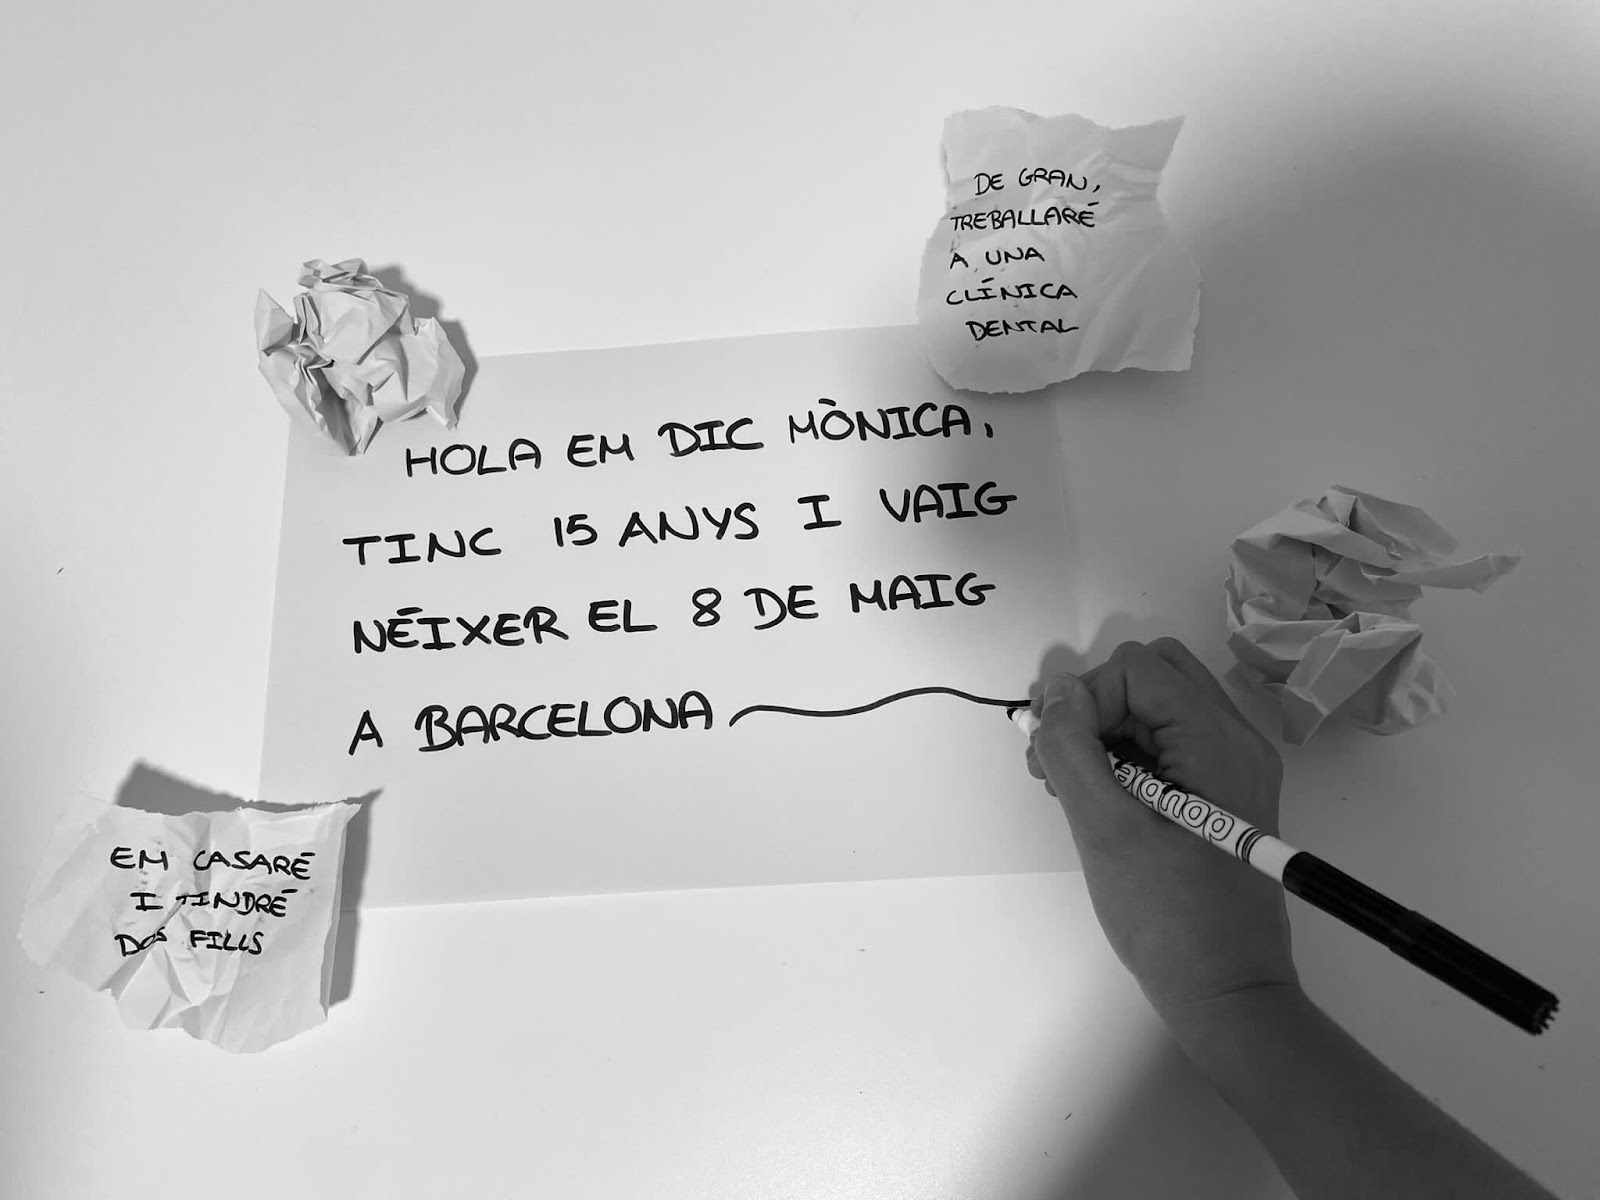 DE GRAN,
TREBALLARÉ
A UNA
CLÍNICA
DENTAL
HOLA EM DIC MÒNICA,
TINC 15 ANYS I VAIG
NÉIXER EL 8 DE MAIG
A BARCELONA
EM CASARÉ
I TINDRÉ
DOS FILLS